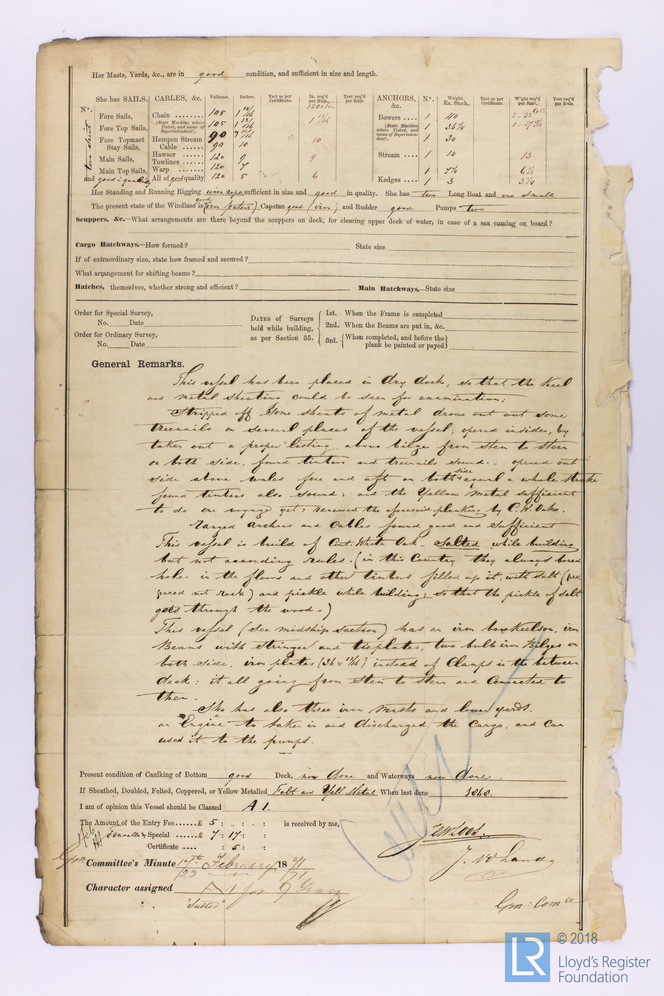 Her Masts, Yards, &c., are in good condition, and sufficient in size and length.
She has SAILS. CABLES, &c. Fathoms. Inches. Test as per Certificate. In. req'd per Rule. ANCHORS, &c. N°. Weight. Ex. Stock. Test as per Certificate. W'ght req'd per Rule. Test req'd per Rule.
N°.
Fore Sails, Chain 105 Bowers 1 40
Fore Top Sails, (State Machine where Tested, and name of Superintendent). 105 (State Machine where Tested, and name of Superintendent). 1
Fore Topmast Stay Sails, Hempen Stream Cable 90 10 1 30
Main Sails, Hawser Towlines 120 9 9 Stream 1 10 13
Main Top Sails, Warp 120 7 1
and good in quality All of good quality 120 5 6 Kedges 1 3
Her Standing and Running Rigging wire rope sufficient in size and good in quality. She has two Long Boat and one small
The present state of the Windlass is good Capstan good (iron) and Rudder good Pumps two
Scuppers, &c.—What arrangements are there beyond the scuppers on deck, for clearing upper deck of water, in case of a sea coming on board?
Cargo Hatchways.—How formed? State size
If of extraordinary size, state how framed and secured?
What arrangement for shifting beams?
Hatches, themselves, whether strong and efficient? Main Hatchways.—State size
Order for Special Survey, No. Date
Order for Ordinary Survey, No. Date
DATES of Surveys held while building, as per Section 35.
1st. When the Frame is completed
2nd. When the Beams are put in, &c.
3rd. When completed, and before the plank be painted or payed
General Remarks.
This vessel has been placed in dry dock, so that the keel
and metal sheating could be seen for examination;
Stripped off some sheats of metal drove out out some
treenails on several places of the vessel, opened insides, by
taken out a proper listing above bilge from stem to stern
on both side, found timbers and treenails sound. opened out
side above wales fore and aft on both side equal a whole strake
found timbers also sound; and the Yellow Metal sufficient
to do one voyage yet; renewed the aforesaid planking by C. W. Oak.
Ranged anchors and cables found good and sufficient
This vessel is build of Cont. White Oak, salted while building
but not according rules. (in this Country they always bored
holes in the floors and other timbers filled up it, with salt
and not rock) and pickle while building, so that the pickle of salt
gets through the wood.)
This vessel (see midship section) has an iron keelson, iron
Beams with stringer and tieplates, two bulb iron Bilges on
both side, iron plates instead of Clamps in the between
deck: it all going from stem to stern and connected to
them.
She has also three iron masts and lower yards.
an Engine to taken in and discharged the cargo, and can
used it to the pumps.
Present condition of Caulking of Bottom good Deck, now done and Waterways now done.
If Sheathed, Doubled, Felted, Coppered, or Yellow Metalled Felt and Yell. Metal When last done 1868.
I am of opinion this Vessel should be Classed A 1.
The Amount of the Entry Fee £ 5 : : is received by me,
Special £ 7 : 17 :
Certificate : 5 :
Committee's Minute 17th February 1871
Character assigned A 1 for 9 Years
"Salted"
© 2018
LR
Lloyd's Register
Foundation